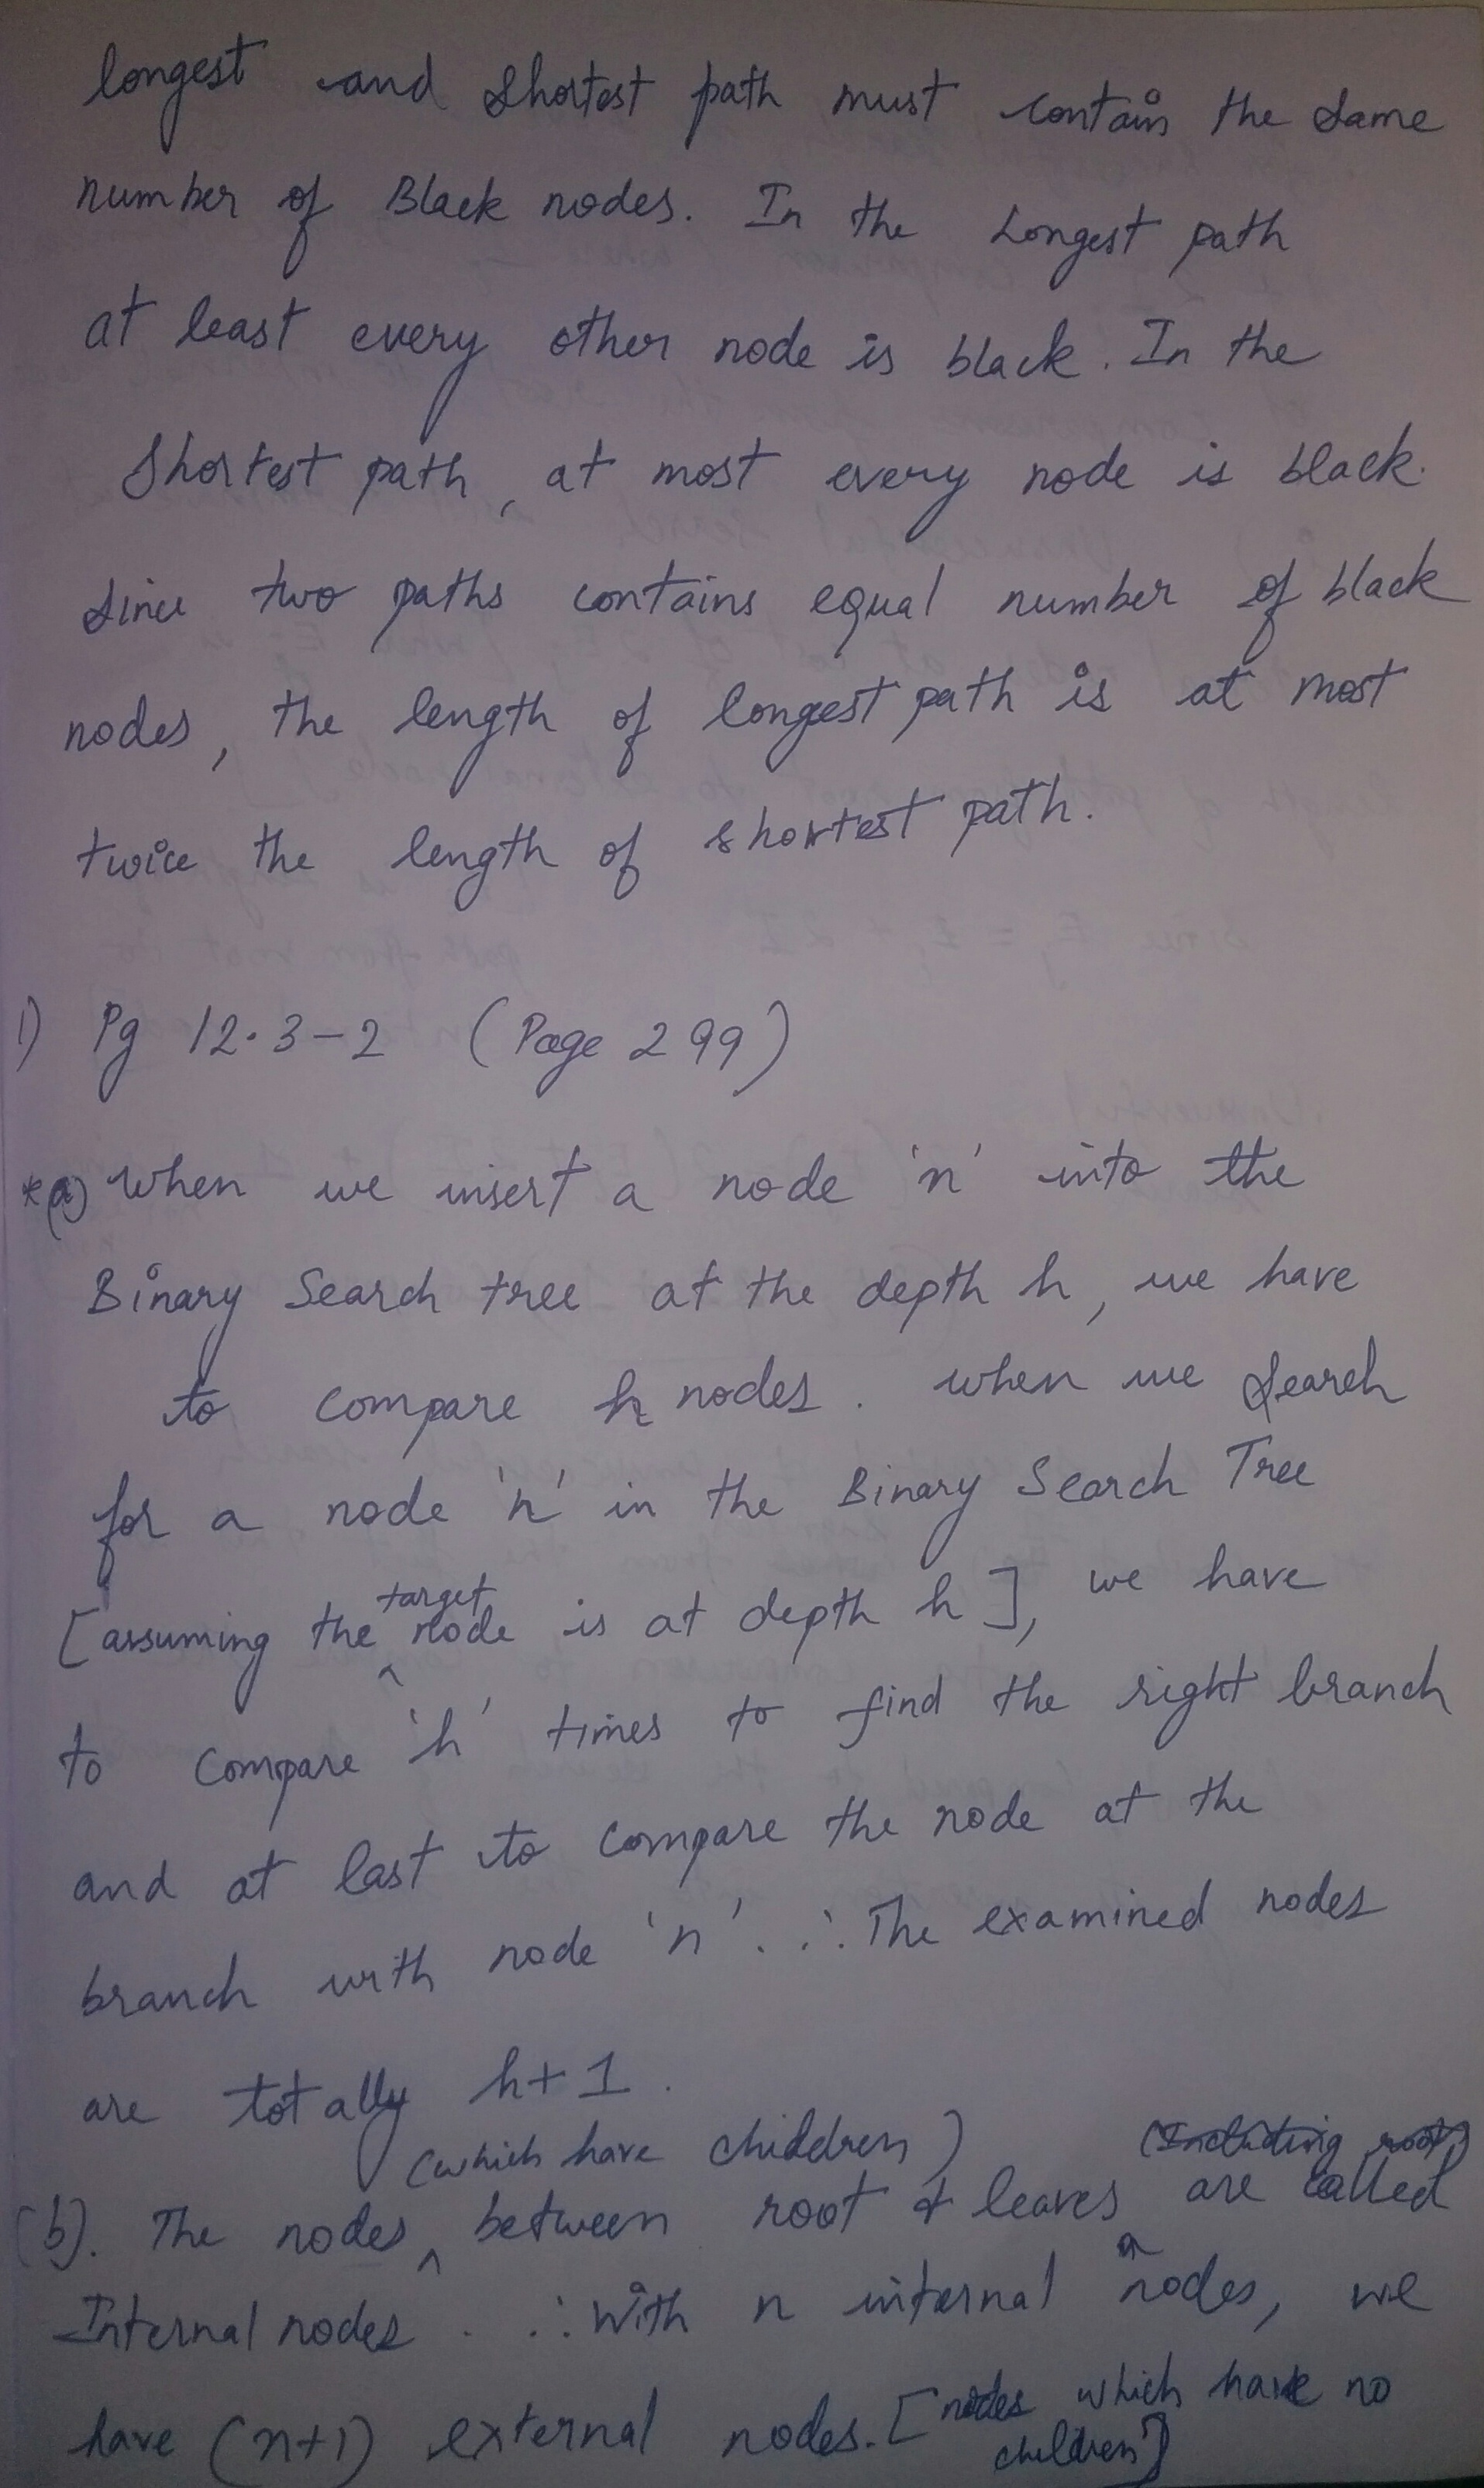 longest and shortest path must contain the same
number of Black nodes. In the Longest path
at least every other node is black. In the
Shortest path, at most every node is black.
Since two paths contains equal number of black
nodes, the length of longest path is at most
twice the length of shortest path.
1) Pg 12.3-2 (Page 299)
*(a) When we insert a node 'n' into the
Binary Search tree at the depth h, we have
to compare h nodes. When we search
for a node 'n' in the Binary Search Tree
[assuming the target node is at depth h], we have
to compare 'h' times to find the right branch
and at last to compare the node at the
branch with node 'n'. ∴ The examined nodes
are totally h+1.
(which have children) (Including root)
(b). The nodes ^ between root & leaves are called
Internal nodes. ∴ With n internal nodes, we
have (n+1) external nodes. [nodes which have no
children]